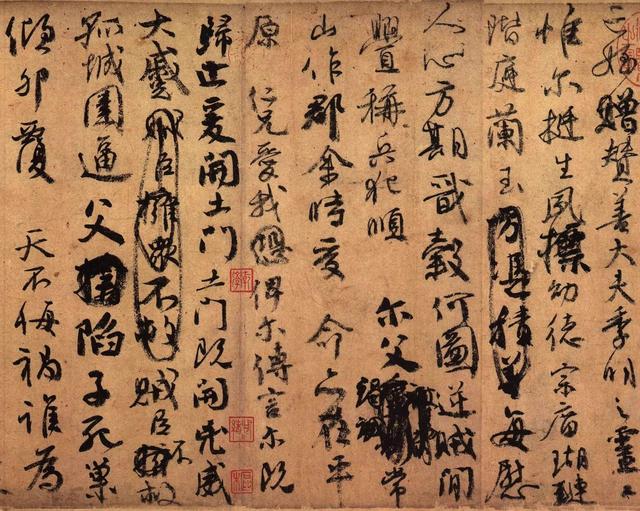 亡姪贈贊善大夫季明之靈曰
惟尔挺生夙標幼德宗廟瑚璉
階庭蘭玉方憑積善每慰
人心方期戩穀何圖逆賊閒
舋稱兵犯順尔父竭誠常
山作郡余時受命亦在平
原仁兄愛我恐俾尔傳言尔既
歸止爰開土門土門既開兇威
大蹙賊臣擁衆不救賊臣不救
孤城圍逼父陷子死巢
傾卵覆天不悔禍誰為